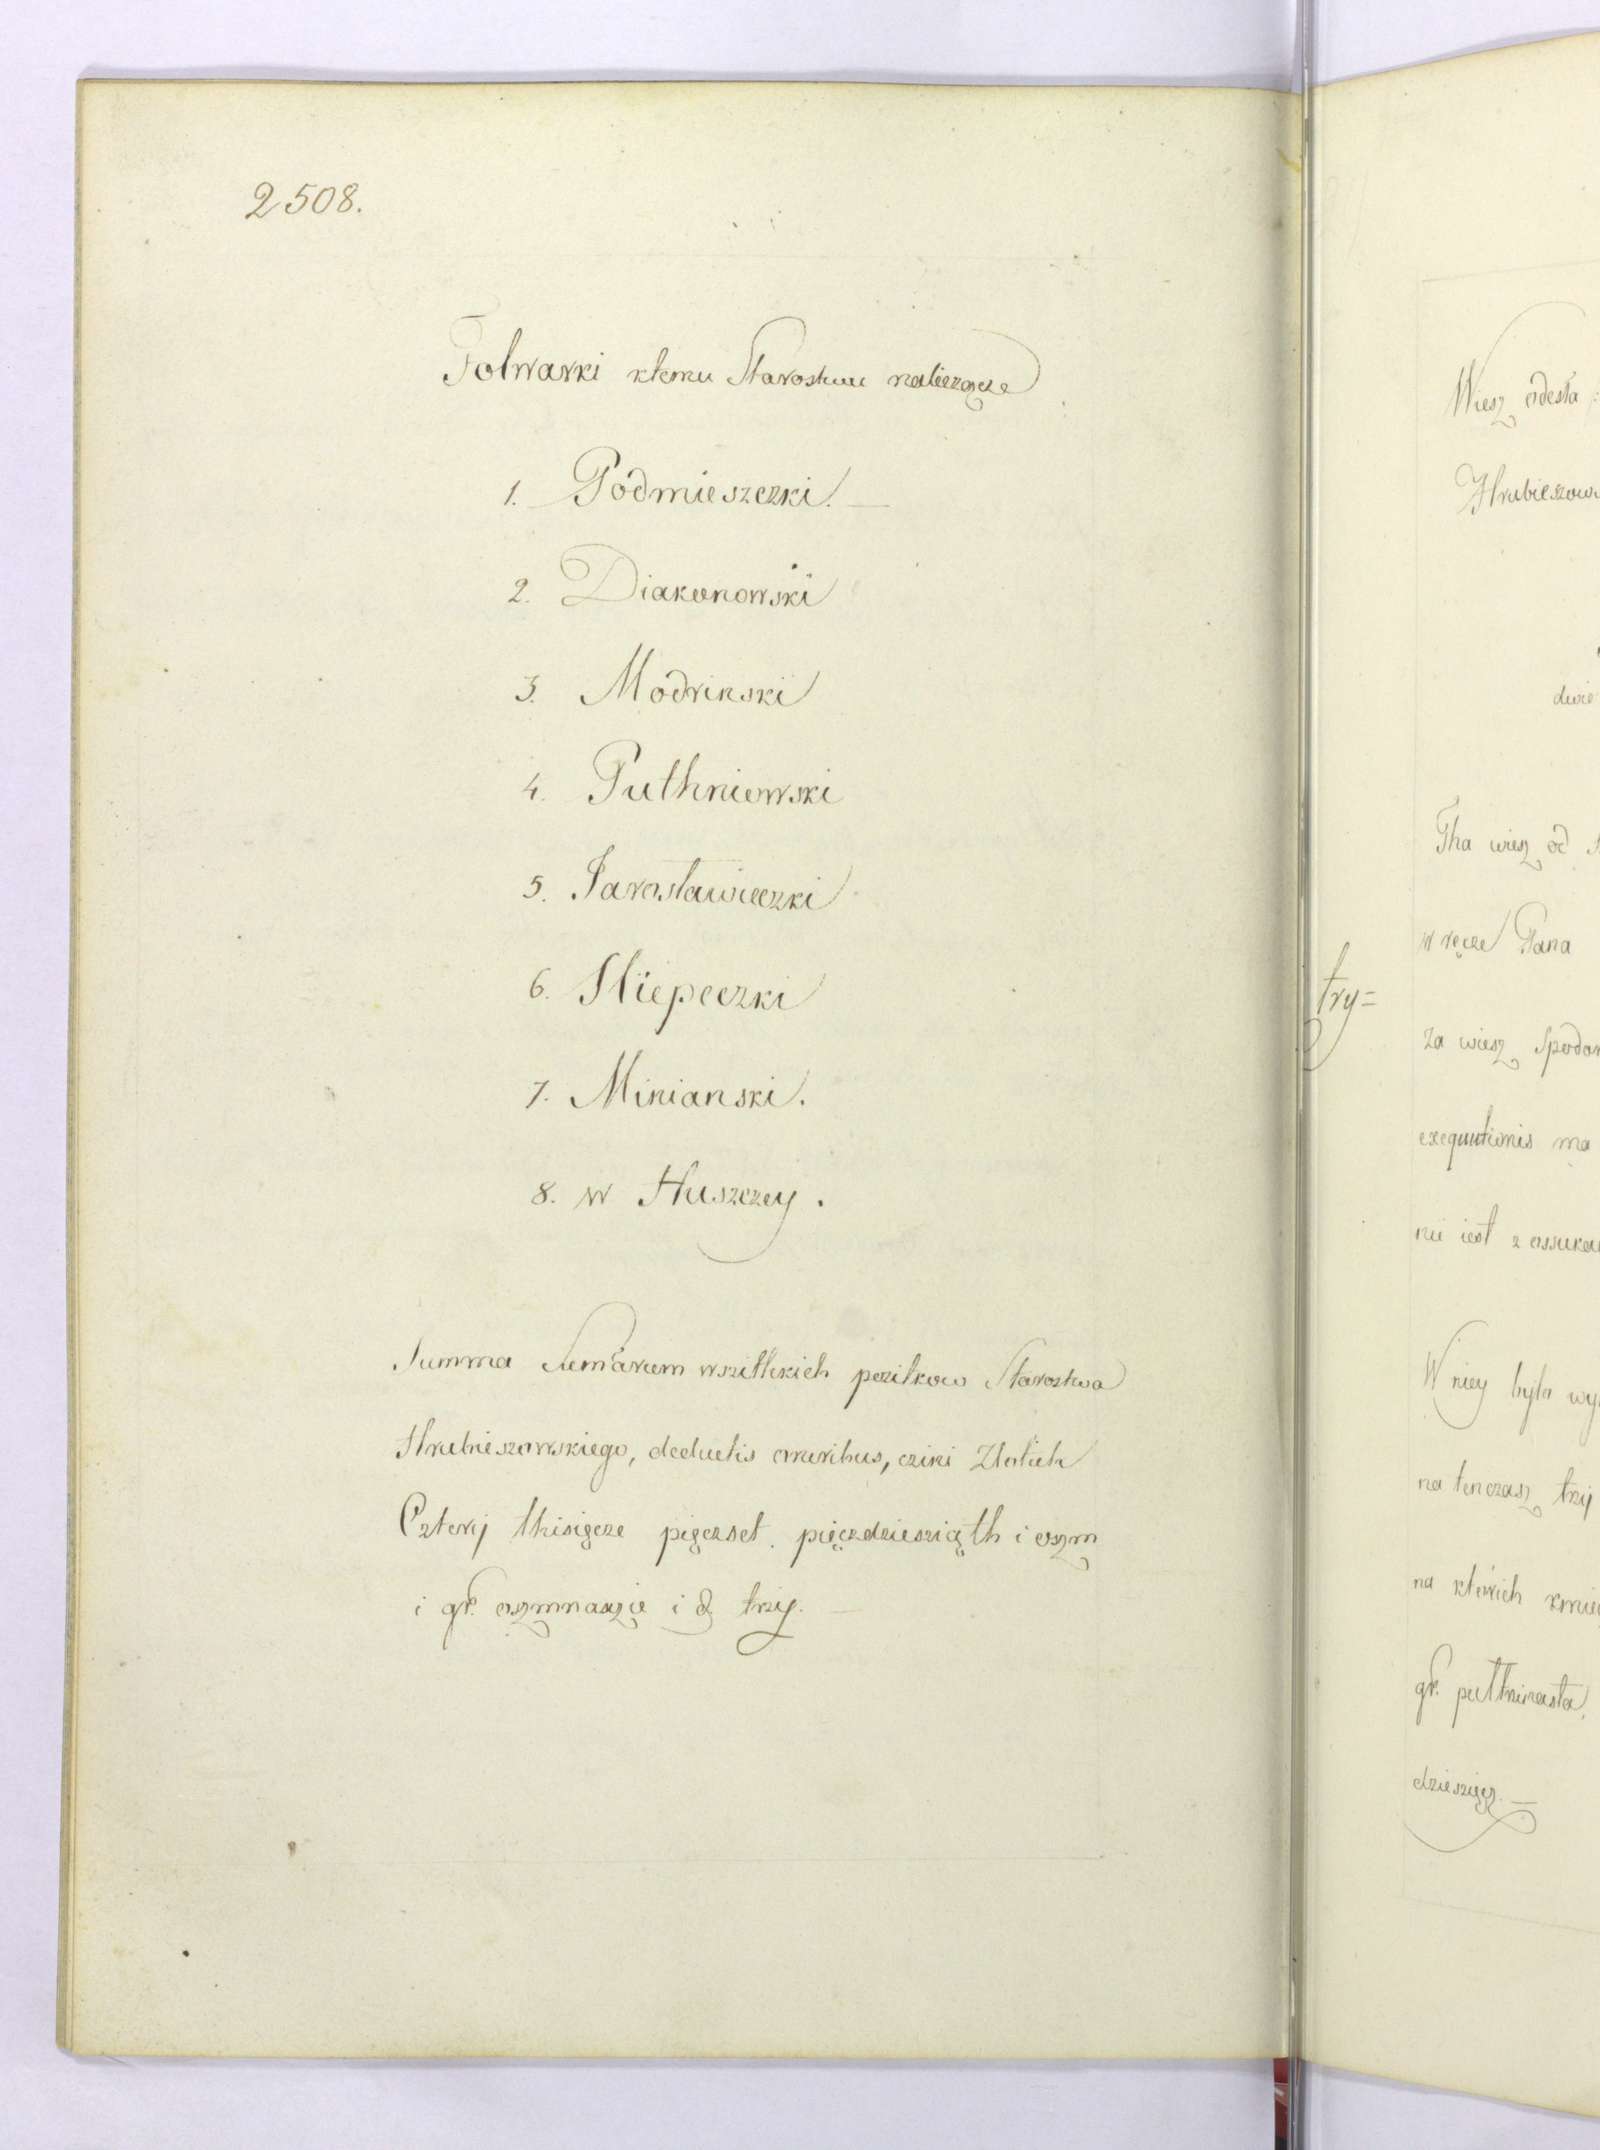 2508.
Folwarki ktemu Starostwu należącze
1. Podmieszczki.
2. Diakonowski
3. Modrinski
4. Puthniowski
5. Jarosławieczki
6. Sliepeczki
7. Minianski.
8. w Huszczey.
Summa Sum̃arum wszithkich pozitkow Starostwa
Hrubieszowskiego, deductis omnibus, czini Złotich
Czterij thisiącze pięczset pięczdziesziąth i oszm
i gr. oszmnaszie i d. trzy.
Wiesz odesła
Hrubieszow
dwie
Tha wiesz od
w ręcze Pana
try=
za wiesz Spodar
exequutionis ma
nie iest z assukou
W niey była wy
na tenczasz trzij
na ktorich kmie
gr. pulthrinasta.
dzieszięcz.